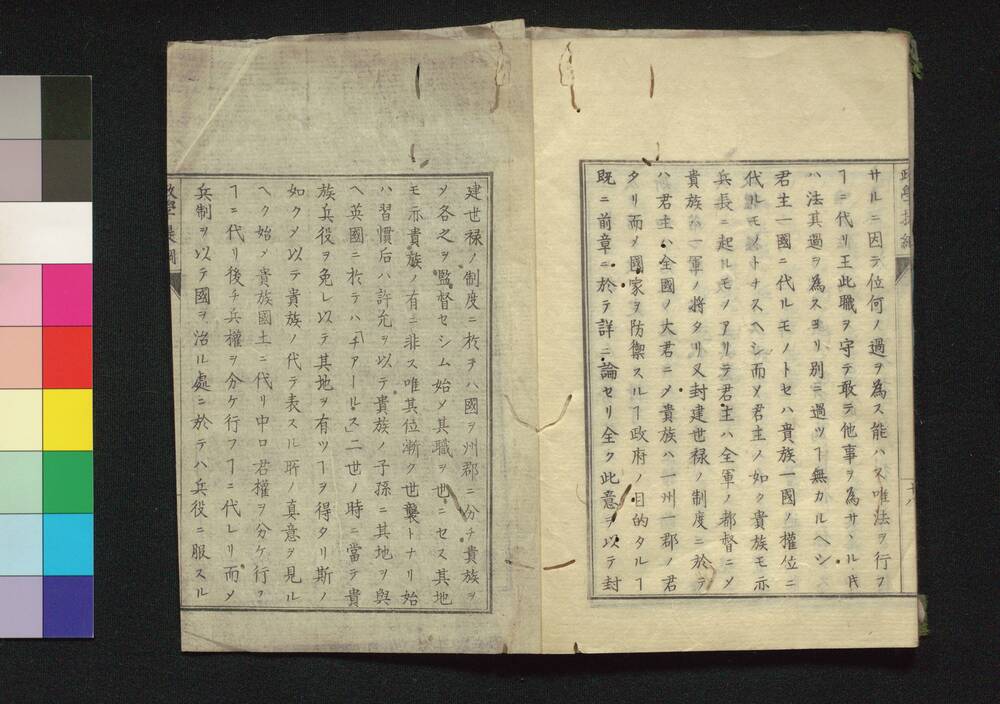 サルニ因テ位何ノ過ヲ為ス能ハス唯法ヲ行フ
ヿニ代リ王此職ヲ守テ敢テ他事ヲ為サヽル𪜈
ハ法其過ヲ為スヨリ別ニ過ツヿ無カルヘシ
君主一國ニ代ルモノトセハ貴族一國ノ權位ニ
代ルモノトナスヘシ而〆君主ノ如ク貴族モ亦
兵長ニ起ルモノアリテ君主ハ全軍ノ都督ニ〆
貴族ハ一軍ノ將タリ又封建世禄ノ制度ニ於テ
ハ君主ハ全國ノ大君ニ〆貴族ハ一州一郡ノ君
タリ而〆國家ヲ防禦スルヿ政府ノ目的タルヿ
既ニ前章ニ於テ詳ニ論セリ全ク此意ヲ以テ封
建世禄ノ制度ニ於テハ國ヲ州郡ニ分チ貴族ヲ
〆各之ヲ監督セシム始〆其職ヲ世ニセス其地
モ亦貴族ノ有ニ非ス唯其位漸ク世襲トナリ始
ハ習慣后ハ許允ヲ以テ貴族ノ子孫ニ其地ヲ與
ヘ英國ニ於テハ「チアールス」二世ノ時ニ當テ貴
族兵役ヲ免レ以テ其地ヲ有ツヿヲ得タリ斯ノ
如ク〆以テ貴族ノ代テ表スル所ノ真意ヲ見ル
ヘク始〆貴族國土ニ代リ中口君權ヲ分ケ行フ
ヿニ代リ後チ兵權ヲ分ケ行フヿニ代レリ而〆
兵制ヲ以テ國ヲ治ル處ニ於テハ兵役ニ服スル